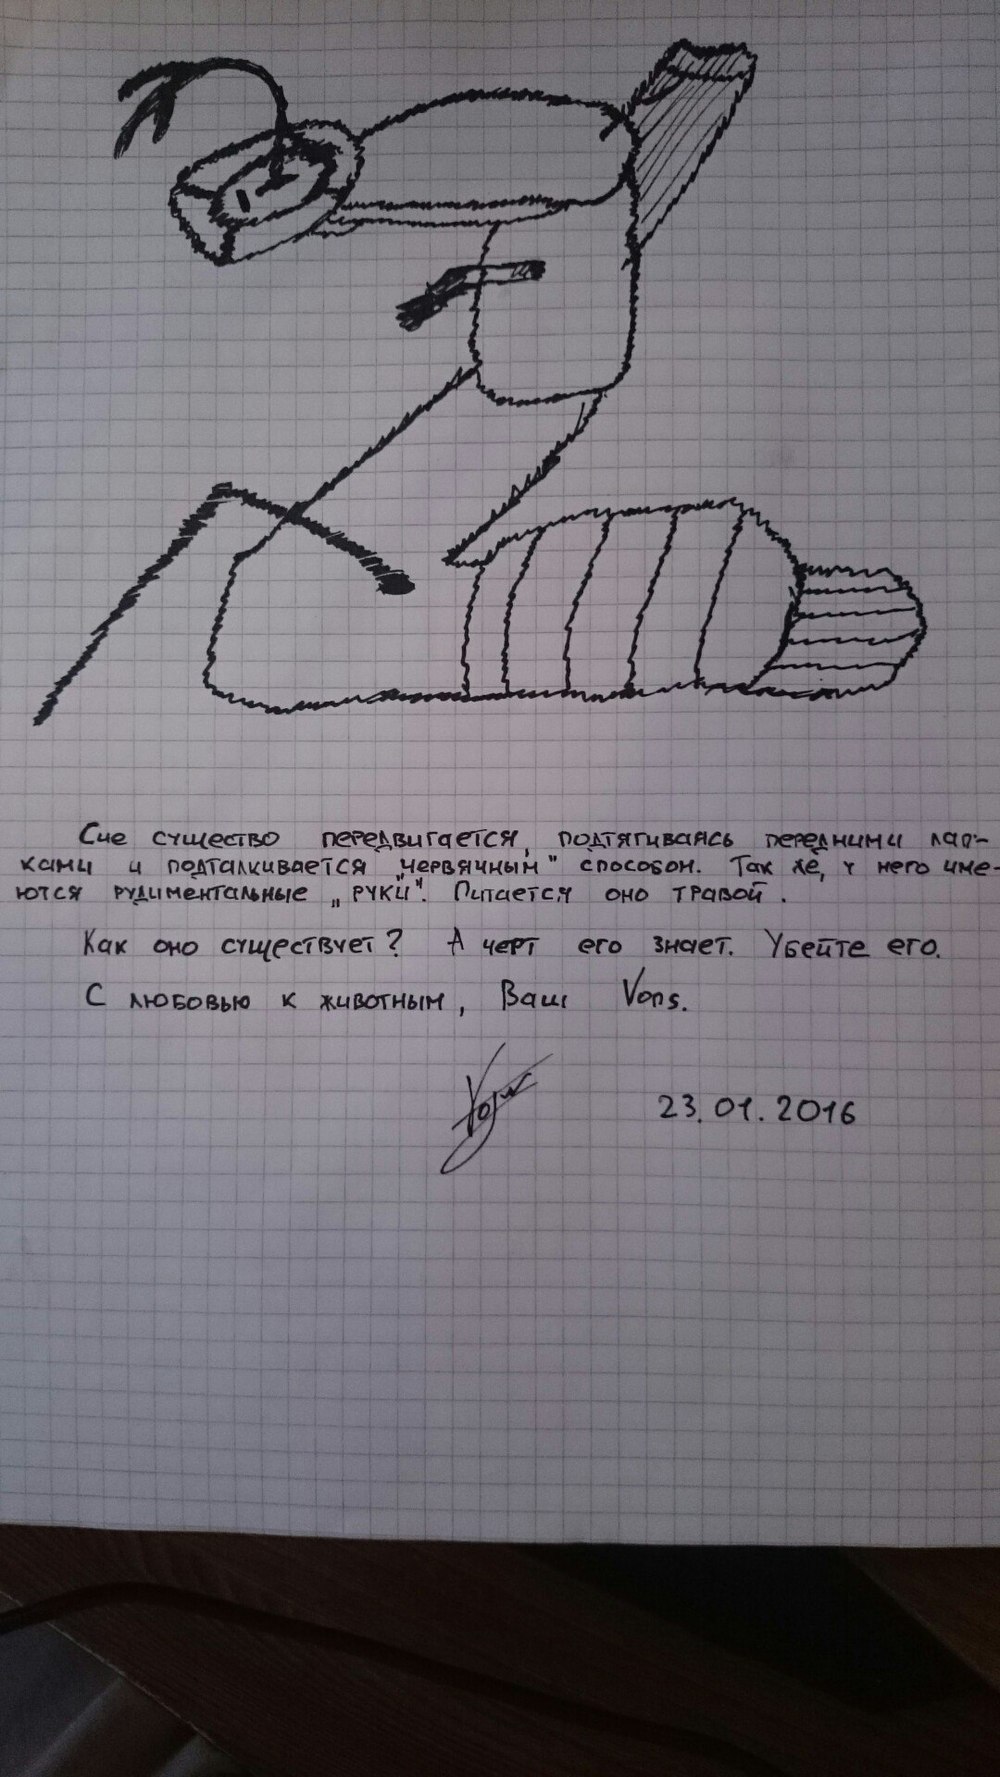 Сие существо передвигается, подтягиваясь передними лап-
ками и подталкивается „червячным" способом. Так же, у него име-
ются рудиментальные „руки". Питается оно травой.
Как оно существует? А черт его знает. Убейте его.
С любовью к животным, Ваш Vons.
23.01.2016